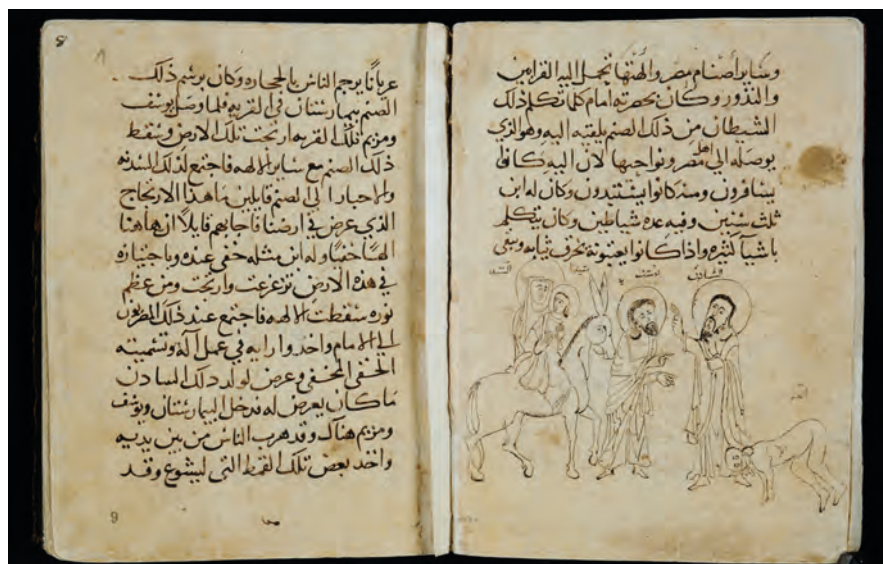 وساير أصنام مصر والهتها تحمل اليه القرابين
والنذور وكان بحضرته امام كلما تكلم ذلك
الشيطان من ذلك الصنم يلقيه اليه وهو الذي
يوصله الي اهل مصر ونواحيها لان اليه كانوا
يسافرون ومنه كانوا يستفيدون وكان له ابن
ثلث سنين وفيه عده شياطين وكان يتكلم
باشيا كثيره واذا كانوا يعبثونه يخرق ثيابه ويبقي
السادن
8
عريانًا يرجم الناس بالحجاره وكان برسم ذلك
الصنم بيمارستان في القريه فلما وصل يوسف
ومريم تلك القريه ارتجت تلك الارض وسقط
ذلك الصنم مع ساير الالهه فاجتمع لذلك السدنه
والاحبار الي الصنم قايلين ما هذا الارتجاج
الذي عرض في ارضنا فاجابهم قايلاً ان هاهنا
الهًا خفيًا وله ابن مثله خفي عنده وباجتيازه
في هذه الارض تزعزعت وارتجت ومن عظم
نوره سقطت الالهه فاجتمع عند ذلك المصريون
الي الامام واخدوا رايه في عمل آله وتسميته
الخفي المخفي وعرض لولد دلك السادن
ما كان يعرض له فدخل البيمارستان ويوسف
ومريم هناك وقد هرب الناس من بين يديه
واخد بعض تلك القمط التي ليشوع وقد
9